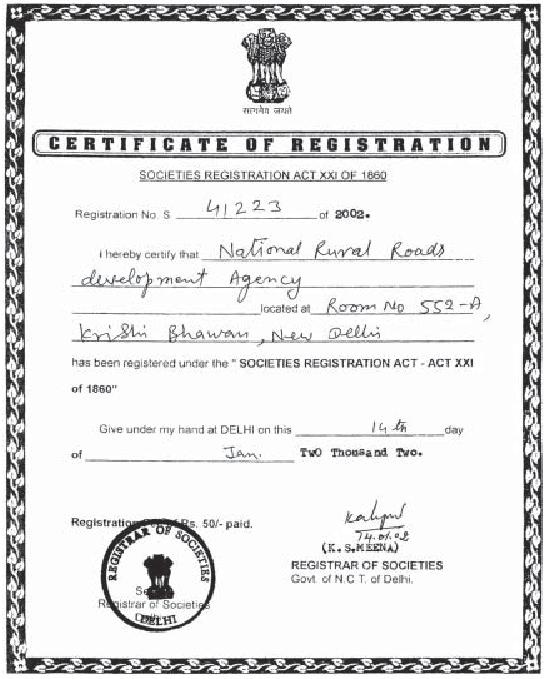 सत्यमेव जयते
CERTIFICATE OF REGISTRATION
SOCIETIES REGISTRATION ACT XXI OF 1860
Registration No. S 41223 of 2002.
I hereby certify that National Rural Roads
development Agency
located at Room No 552-A,
Krishi Bhawan, New Delhi
has been registered under the " SOCIETIES REGISTRATION ACT - ACT XXI
of 1860"
Give under my hand at DELHI on this 14th day
of Jan. Two Thousand Two.
Registration Rs. 50/- paid.
14.01.02
(K.S.MEENA)
REGISTRAR OF SOCIETIES
Govt. of N.C T. of Delhi.
REGISTRAR OF SOCIETIES
DELHI
Registrar of Societies